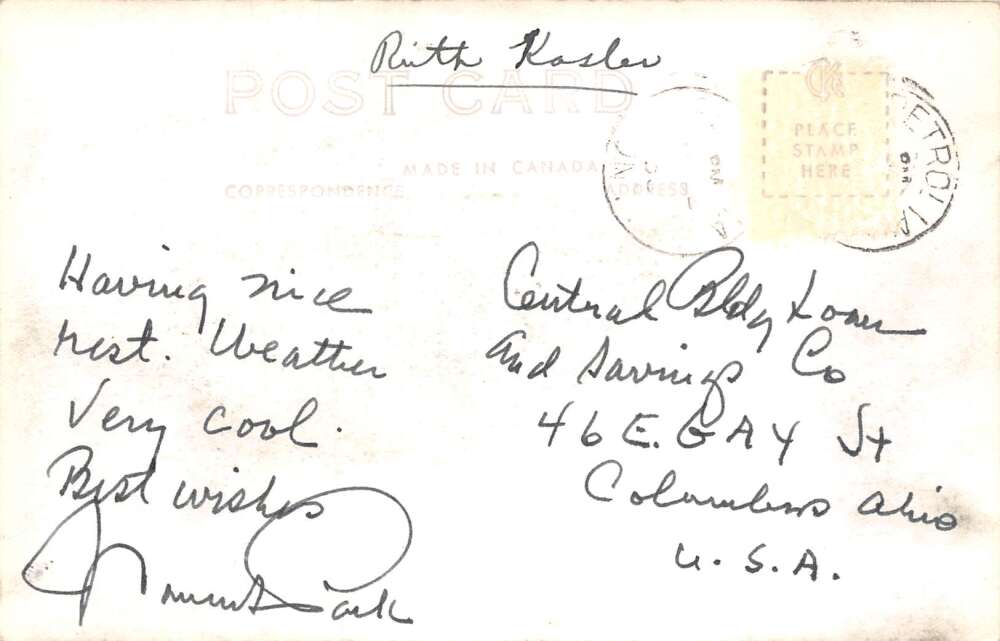 Ruth Kosler
POST CARD
PLACE
STAMP
HERE
MADE IN CANADA
CORRESPONDENCE
ADDRESS
PETROLIA
Having nice
rest. Weather
Very cool.
Best wishes
Central Bldg Loan
And Savings Co
46 E. GAY St
Columbus Ohio
U.S.A.